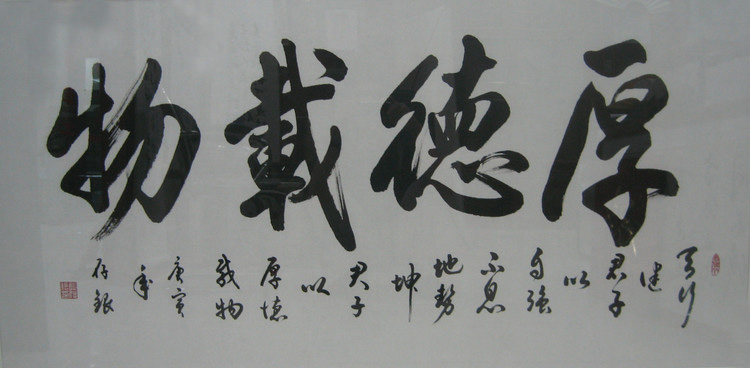 厚德載物
天行
健
君子
以
自強
不息
地勢
坤
君子
以
厚德
載物
庚寅
年
存銀